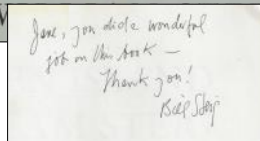 Jane, you did a wonderful
job on this book —
Thank you!
Bill Steig